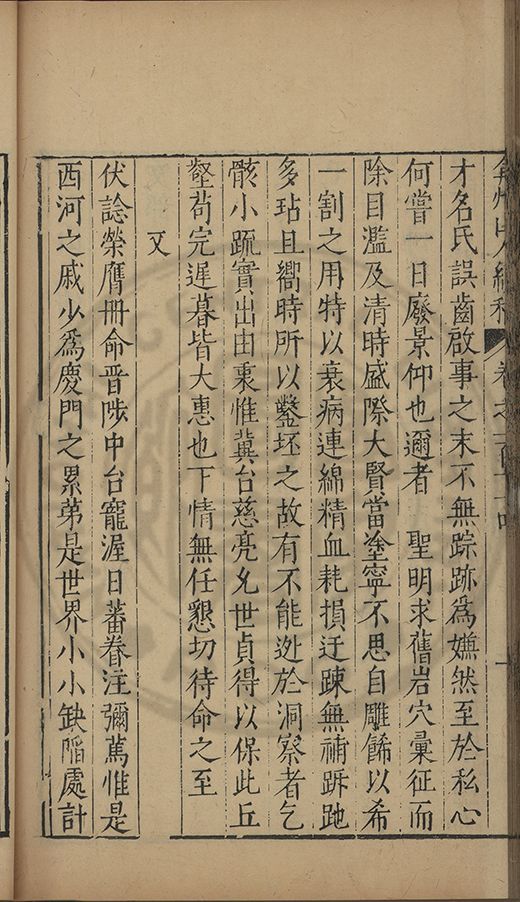 弇州山人續稿 卷之一百
才名氏誤齒啟事之末不無踪跡為嫌然至於私心
何嘗一日廢景仰也邇者 聖明求舊岩穴彙征而
除目濫及清時盛際大賢當塗寧不思自雕餙以希
一割之用特以衰病連綿精血耗損迂踈無補跅跎
多玷且嚮時所以鑿坯之故有不能逃於洞察者乞
骸小䟽實出由裏惟冀台慈亮允世貞得以保此丘
壑苟完遲暮皆大惠也下情無任懇切待命之至
又
伏諗榮膺冊命晉陟中台寵渥日蕃眷注彌篤惟是
西河之戚少為慶門之累苐是世界小小缺陷處計